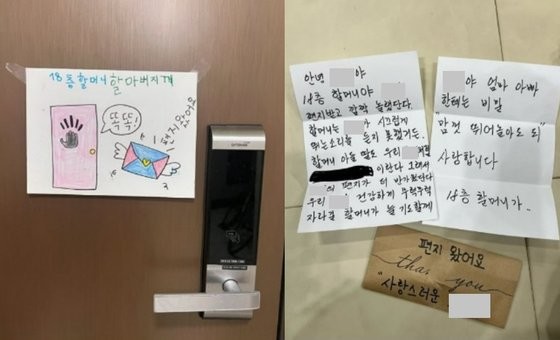 18층할머니할아버지께
똑똑!
편지왔어요
GATEMAN
안녕 야
18층 할머니야
편지받고 깜짝 놀랬단다
할머니는 가 시끄럽게
뛰는소리를 듣지 못했거든.
할머니 아들 딸도 우리 처럼
이란다 그래서
의 편지가 더 반가웠단다
우리 건강하게 무럭무럭
자라길 할머니가 늘 기도할께
야 엄마 아빠
한테는 비밀
맘껏 뛰어놀아도 되"
사랑합니다
18층 할머니가.
편지 왔어요
thank you
"사랑스러운